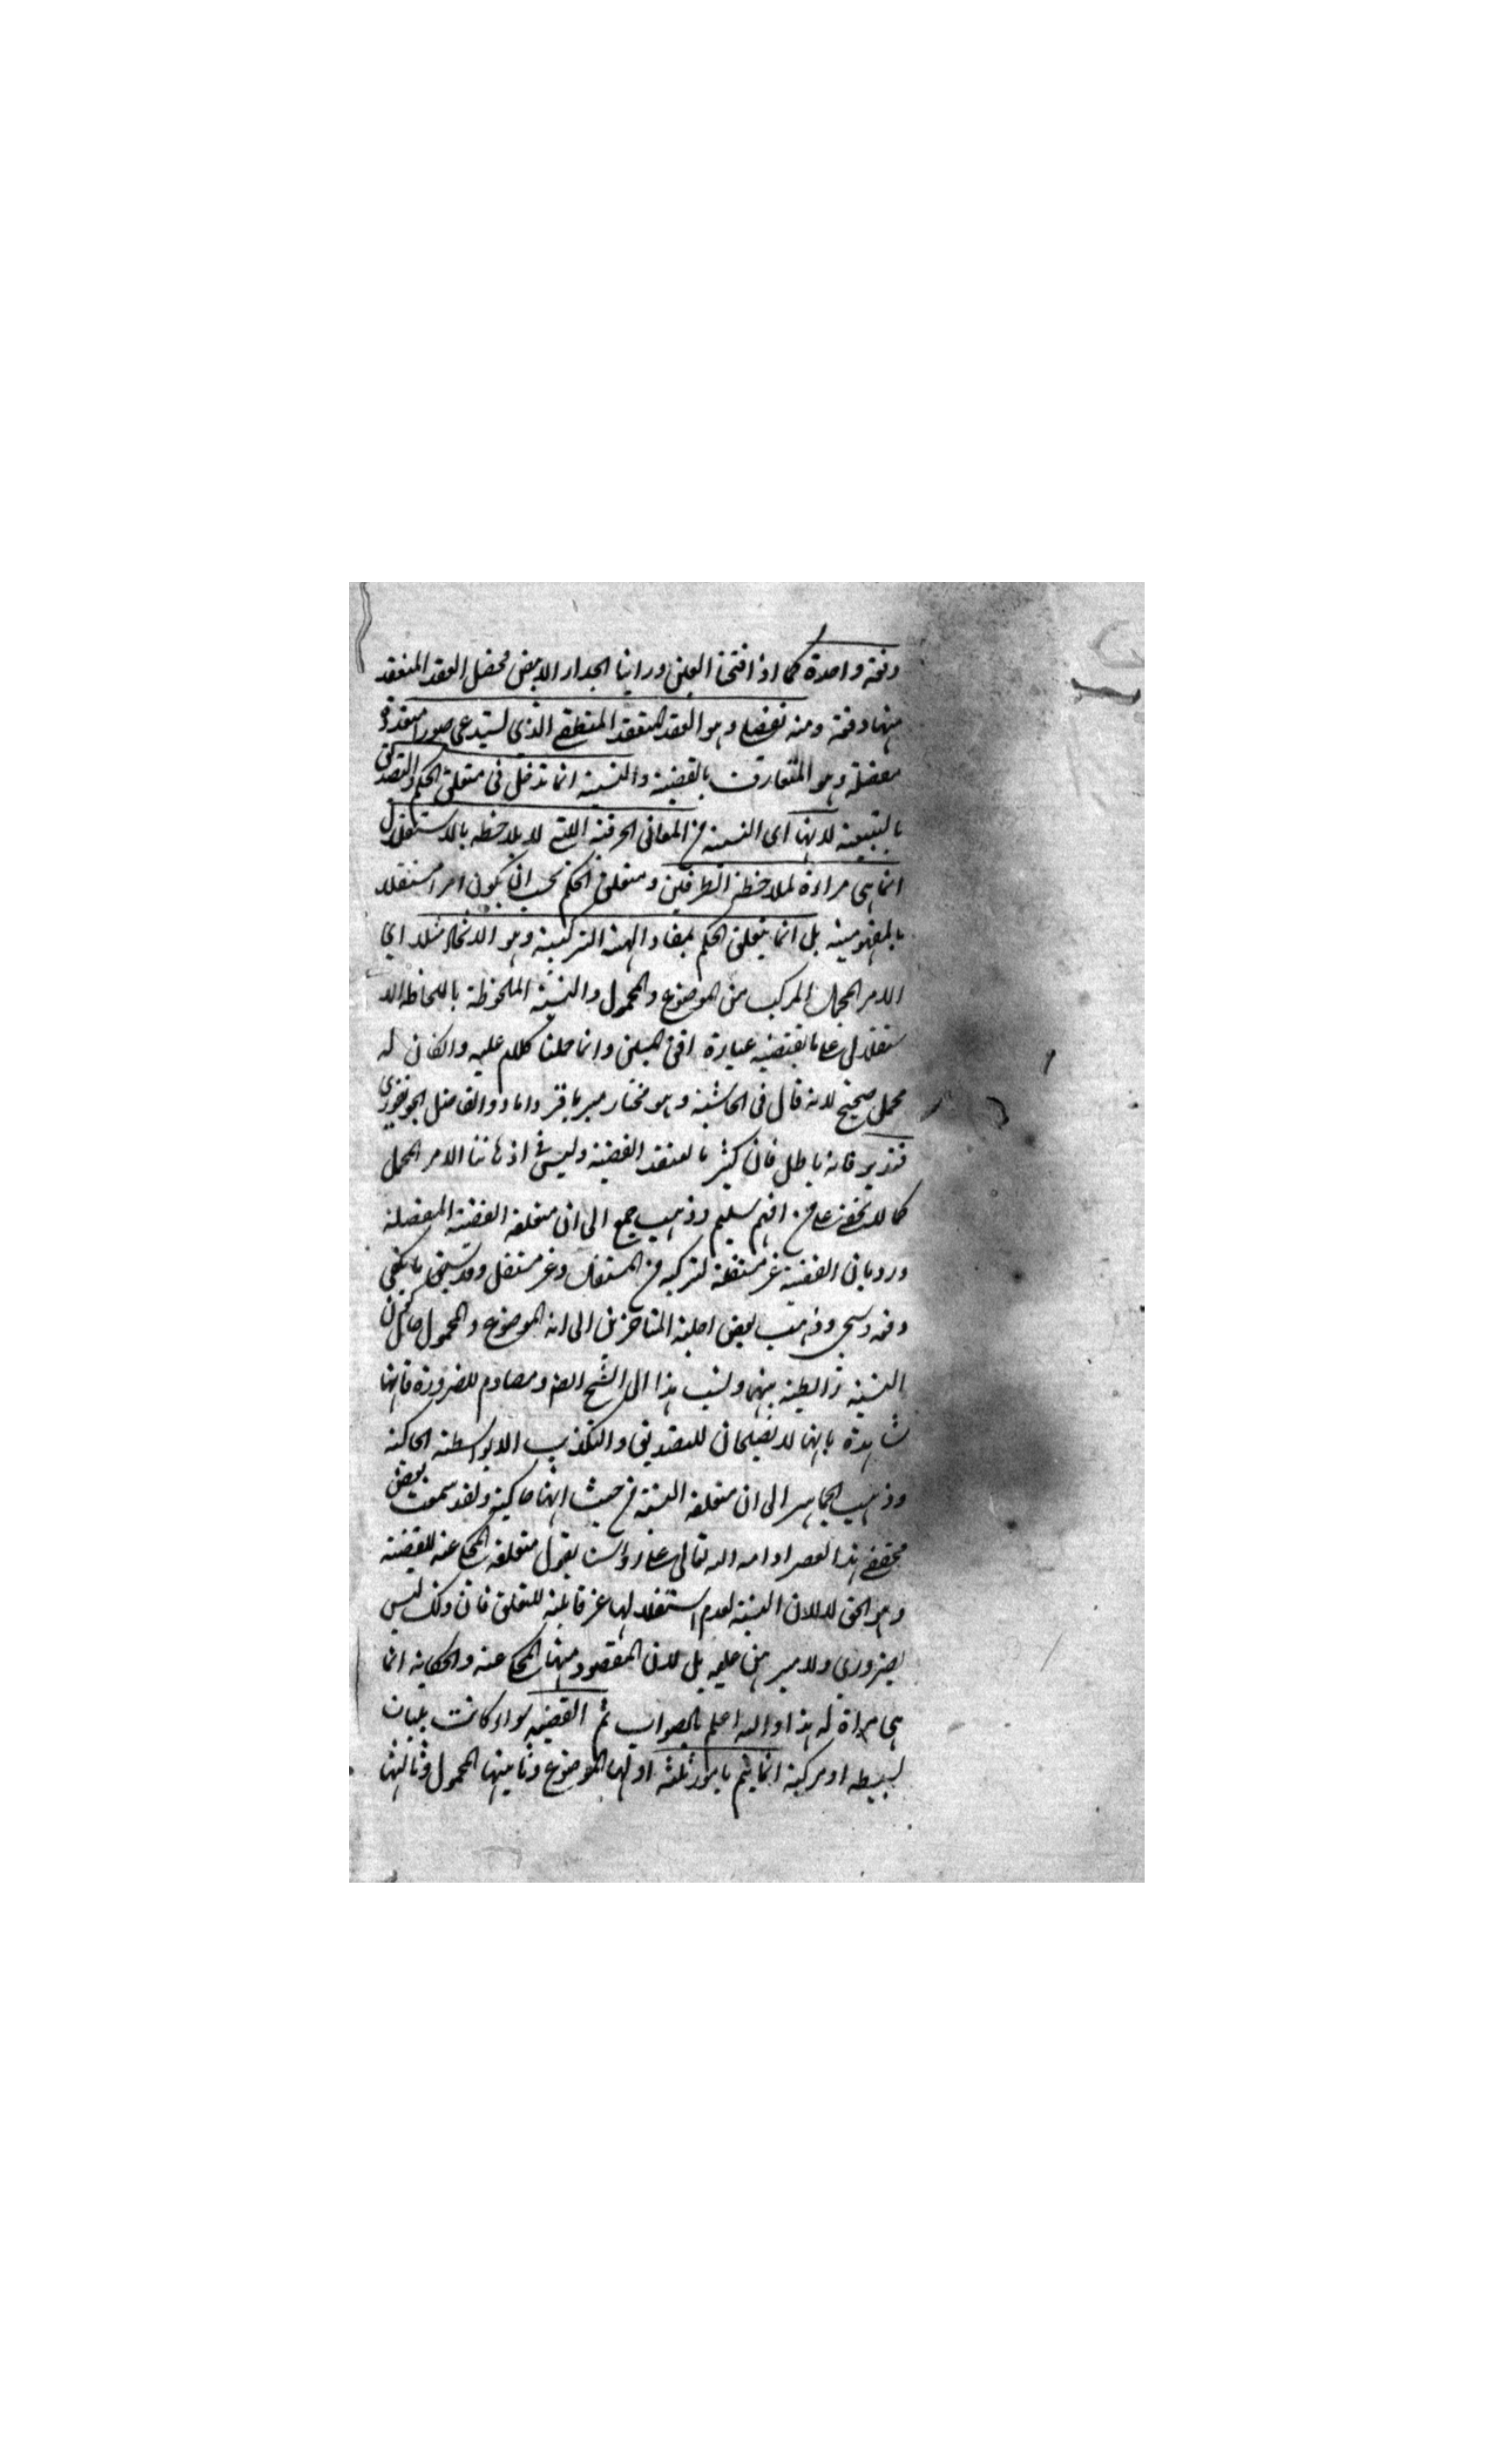 دفعة واحدة كما اذا فتحنا العين وراينا الجدار الابيض فحصل العقد المنعقد
منهما دفعة ومنه تفصيلي وهو العقد المنعقد المنطقي الذي يستدعي صورا متعددة
مفصلة وهو المتعارف بالقضية والنسبة انما تدخل في متعلق الحكم والتصديق
بالتبعية لانها اى النسبة من المعاني الحرفية التي لا يلاحظ بالاستقلال
انما هي مراءة لملاحظة الطرفين ومتعلق الحكم يجب ان يكون امرا مستقلا
بالمفهومية بل انما يتعلق الحكم بمفاد الهيئة التركيبية وهو الاتحاد مثلا اي
الامر المجمل المركب من الموضوع والمحمول والنسبة الملحوظة باللحاظ الا
ستقلالي على ما يقتضيه عبارة افق المبين وانما حملنا كلامه عليه وان كان له
محمل صحيح لانه قال في الحاشية وهو مختار مير باقر داماد والفاضل الجونفوري
فتدبر فانه باطل فان كثيرا ما نعتقد القضية وليس في اذهاننا الامر المجمل
كما لا يخفى على من له فهم سليم وذهب جمع الى ان متعلقه القضية المفصلة
ورد بان القضية غير مستقلة لتركبه من المستقل وغير مستقل وقد سبق ما يكفي
دفعه وسيجي وذهب بعض اجلة المتاخرين الى انه الموضوع والمحمول حال كون
النسبة رابطة بينهما ونسب هذا الى الشيخ ايضا ومصادم للضرورة فانها
شاهدة بانهما لا يصلحان للتصديق والتكذيب الا بواسطة الحاكية
وذهب الجماهير الى ان متعلقه النسبة من حيث انها حاكية ولقد سمعت بعض
محققي هذا العصر ادامه الله تعالى على رؤاسنا يقول متعلقه المحكي عنه للقضية
وهو الحق لا لان النسبة لعدم استقلالها غير قابلة للتعلق فان ذلك ليس
بضروري ولا مبرهن عليه بل لان المقصود منها المحكي عنه والحكاية انما
هي مراة له هذا والله اعلم بالصواب ثم القضية سواء كانت هلية
بسيطه او مركبة انما يتم بامور ثلثة اولها الموضوع وثانيها المحمول وثالثها